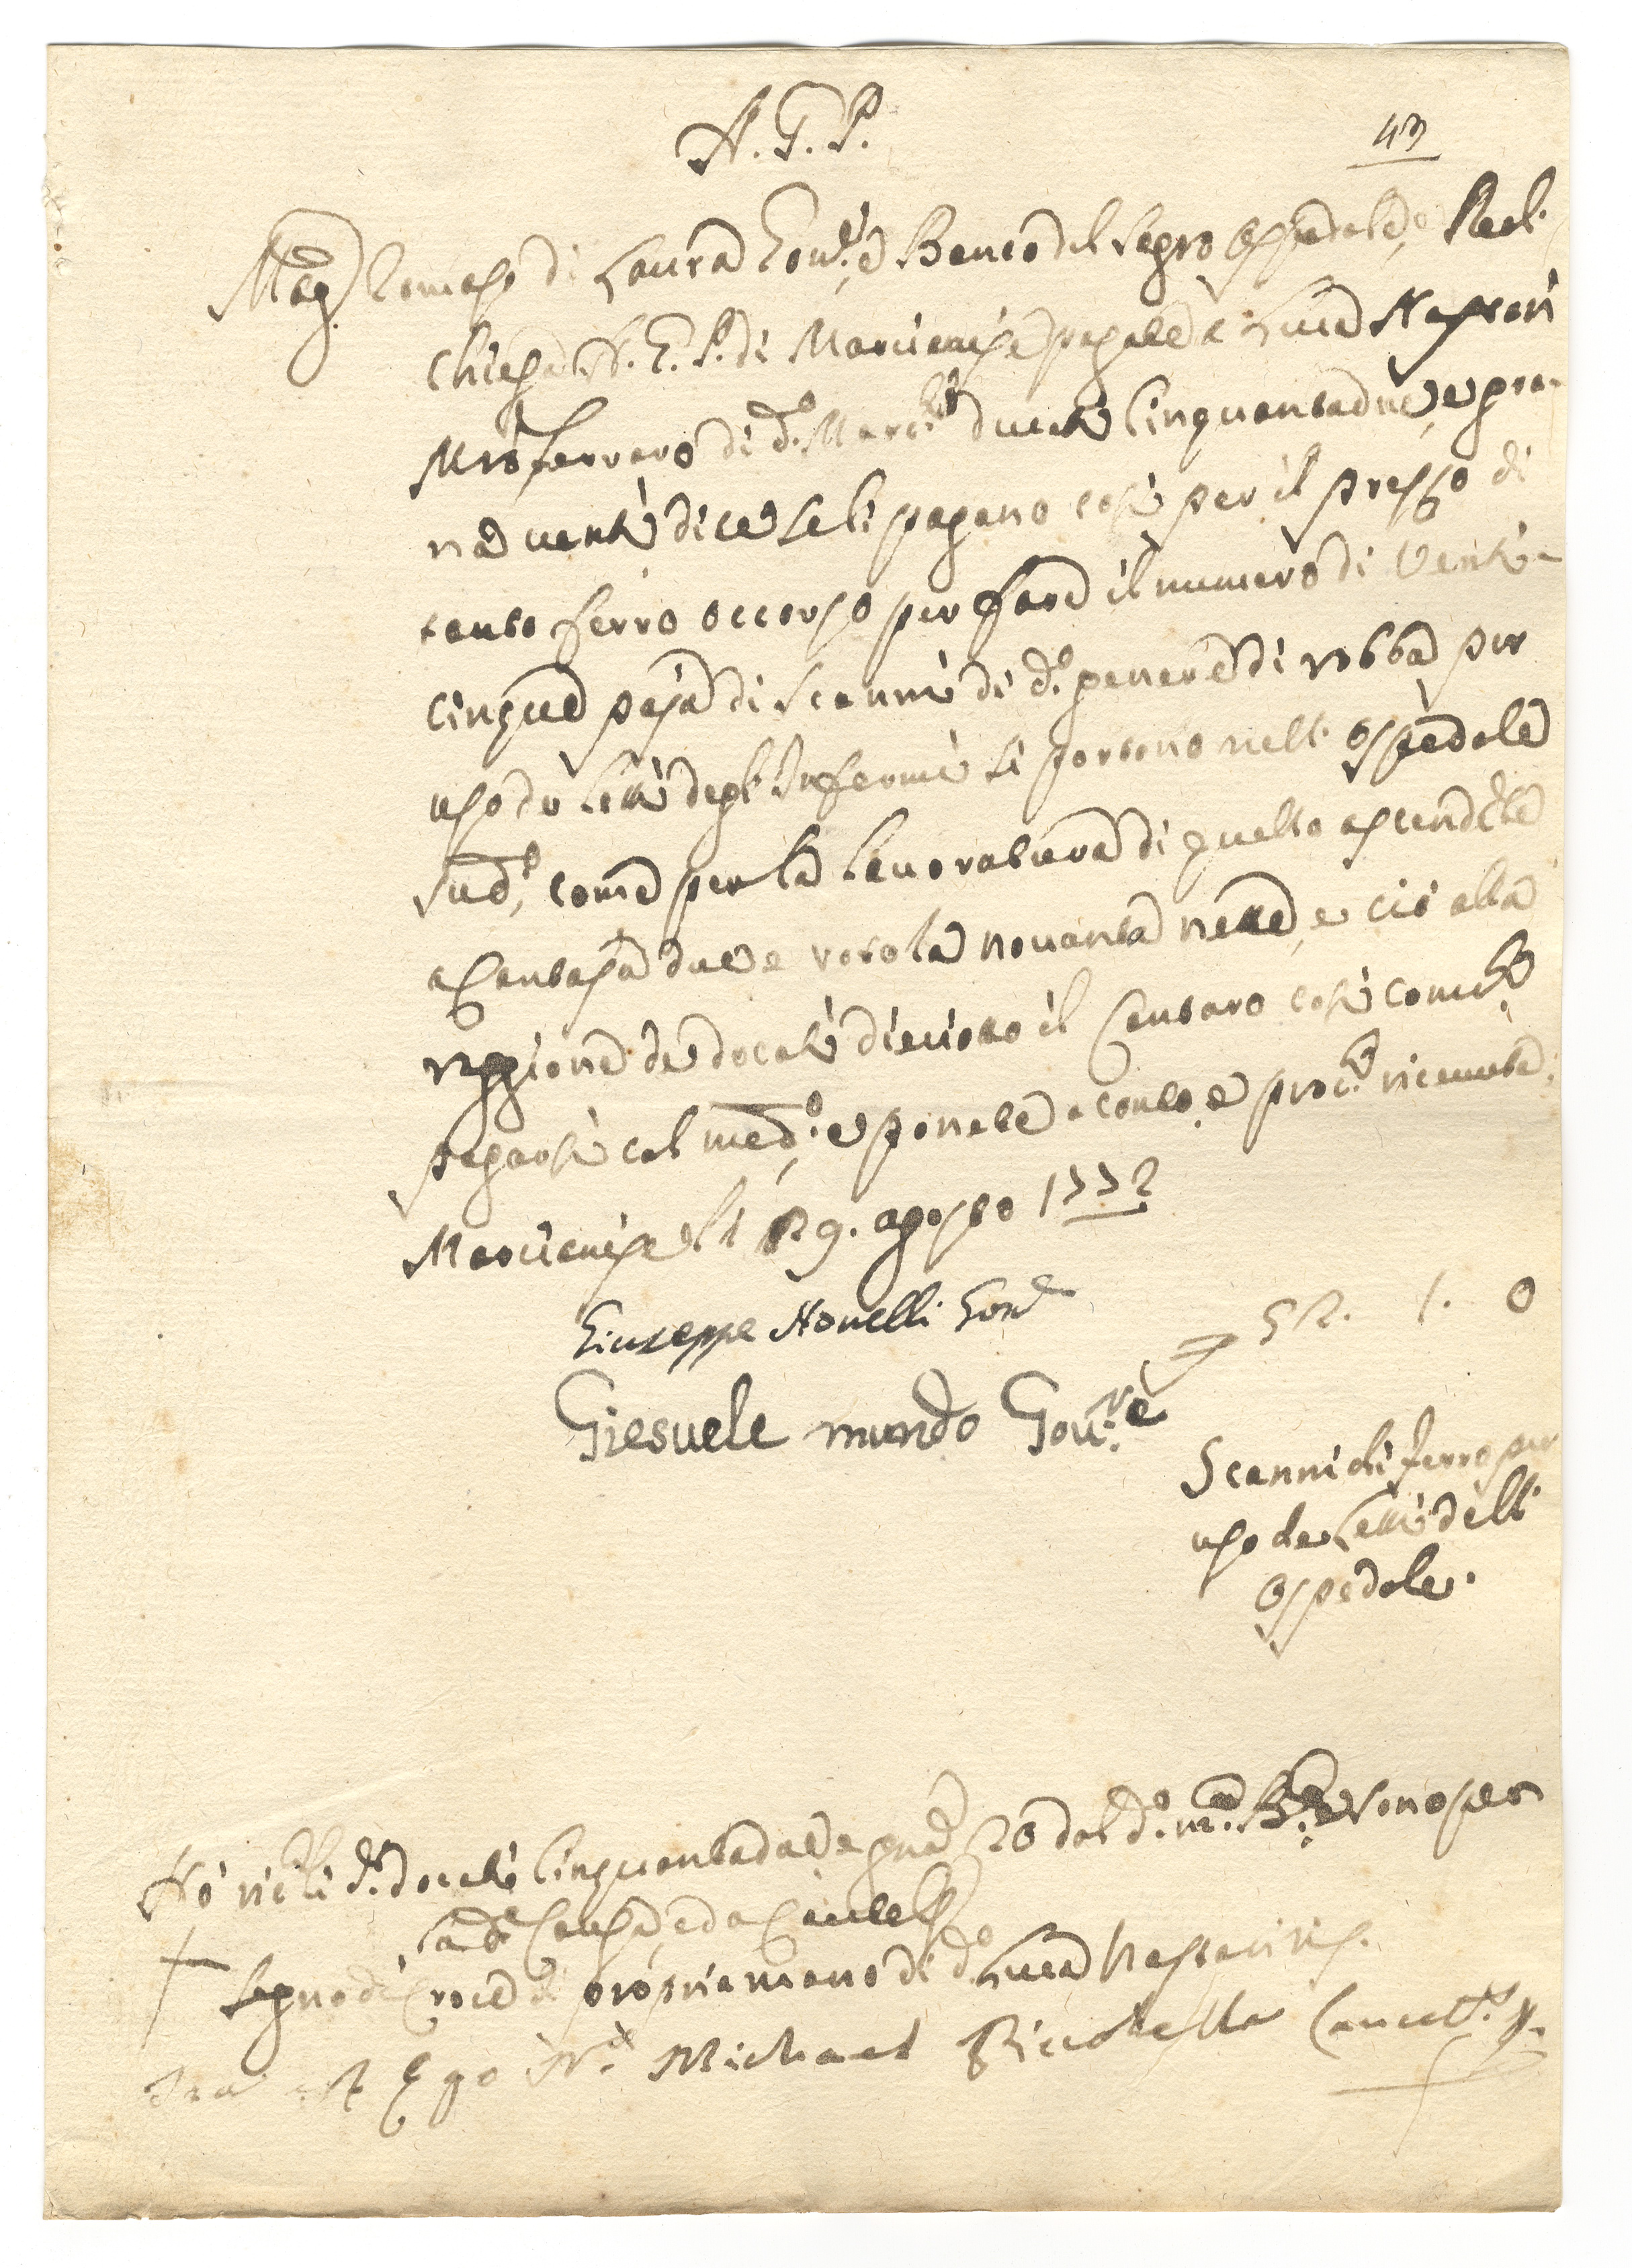 A. G. P.
43
Mag.co Tomaso di Laura Gov.re, e Banco del Sagro Ospedale, e Real
Chiesa A. G. P. di Marcianise pagate a Luca Nastari
Mro ferraro di d.o Marc.se ducati Cinquantadue, e gra-
na venti dite seli pagano così per il prezzo di
tanto ferro occorso per fare il numero di Venti-
cinque paja di scanni di d.o genere di robba per
uso de letti degl'Infermi si portono nell'ospedale
sud.o, come per la lavoratura di quello ascendente
a Cantaja due e rotola novanta nette, e ciò alla
raggione de docati dieciotto il Cantaro così conv.to
pagarsi col med.o, e ponete a conto, e proc.te ricevuta.
Marcianise li 29. agosto 1772
Giuseppe Novelli Gov.re
52. 1. 0
Giesuele mundo Gov.re
Scanni di ferro per
uso de Letti dell'
Ospedale.
Hò ric.ti li d.i docati Cinquantadue, e grana 20 dal d.o m.co B. e sono per
la d.a Causa, ed a Cautela
Segno di Croce di propria mano di d.o Luca Nastari
Ita est Ego N.r Michael Piccolella Cancell.s